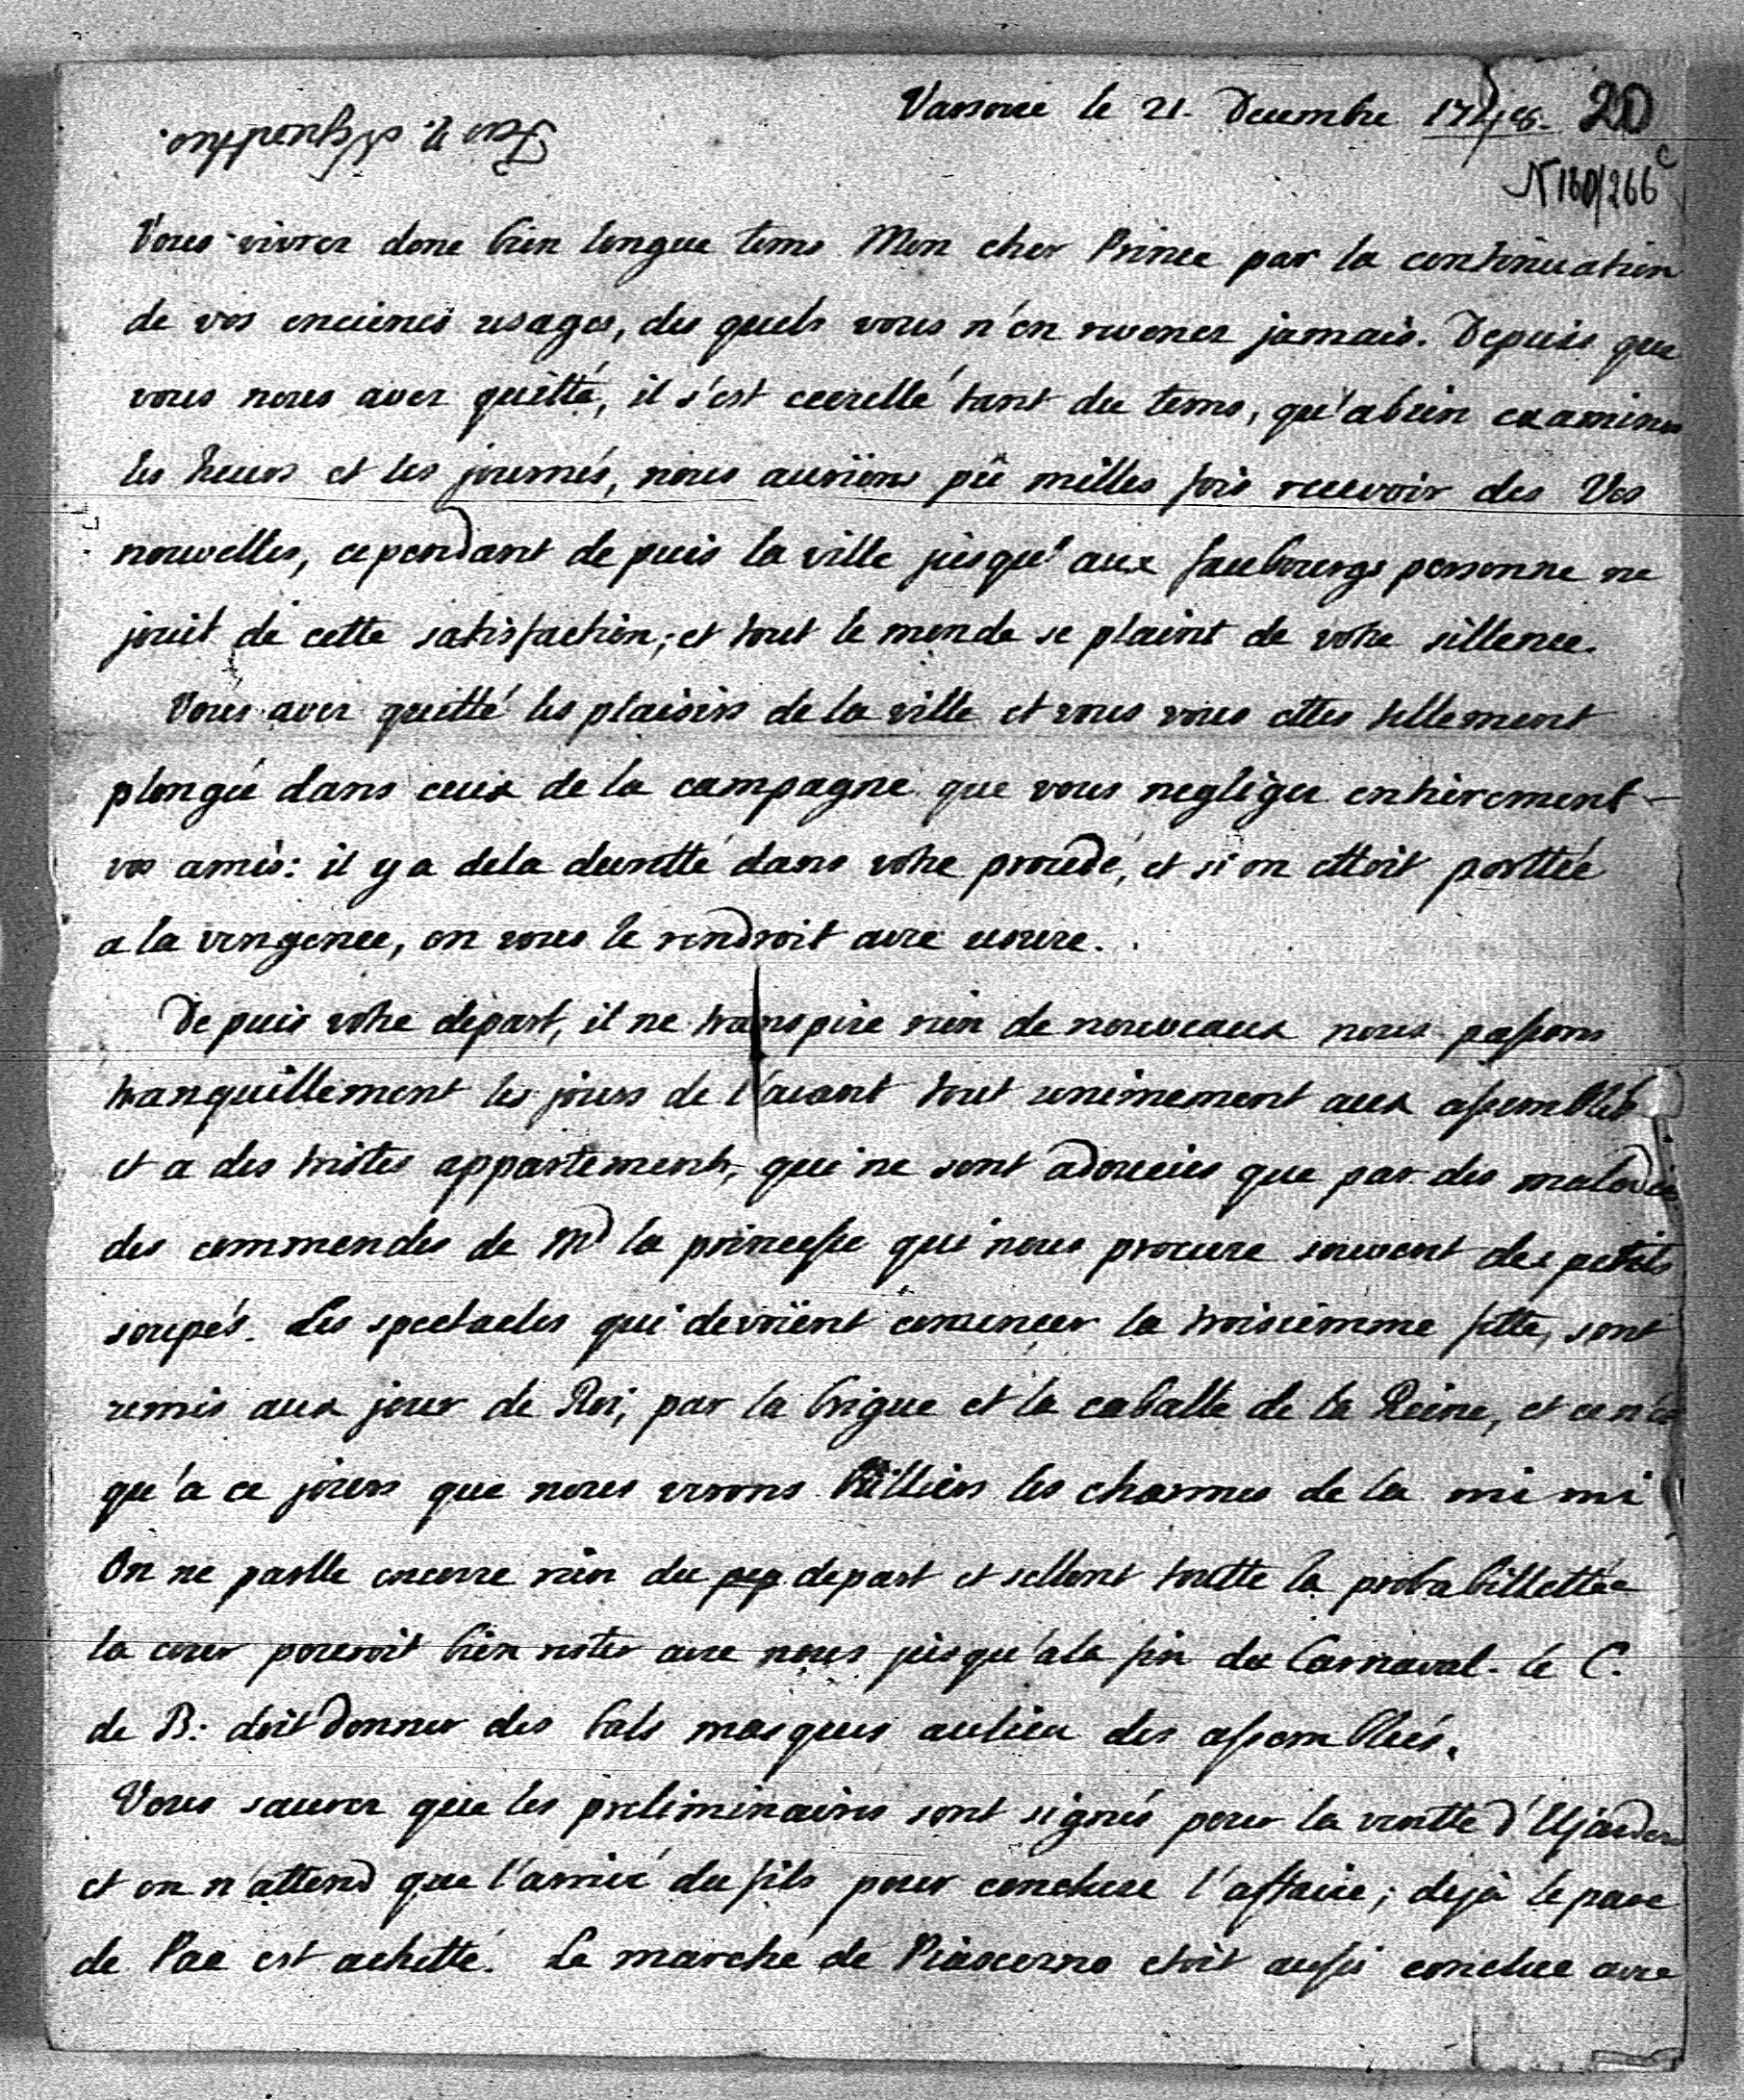 Varsovie le 21. Decembre 1748. 20
N 180/266 c
Vous vivrez donc bien longue tems Mon cher Prince par la continuation
de vos enciènes usages, des quels vous n'en revenez jamais. Depuis que
vous nous avez quitté, il s'est ecoullé tant du tems, qu'abien examiner
les heurs et les journés, nous aurions pû milles fois recevoir des Vos
nouvelles, cependant depuis la ville jusqu'aux faubourgs personne ne
jouit de cette satisfaction; et tout le monde se plaint de votre sillence.
Vous avez quitté les plaisirs de la ville et vous vous ettes tellement
plongée dans ceux de la campagne que vous negligez entierement
vos amis: il y a dela duretté dans votre procedé, et si on ettoit porttée
a la vengence, on vous le rendroit avec usure.
Depuis votre départ, il ne transpire rien de nouveaux nous passons
tranquillement les jours de l'avent tout unimement aux assemblés
et a des tristes appartements, qui ne sont adoucies que par des maladies
des commendes de Md la princesse qui nous procure souvent des petits
soupés. Les spectacles qui devoient comencer la troisiemme fette, sont
remis aux jour de Roi, par la brigue et la caballe de la Reine, et ce n'es
qu'a ce jours que nous verons brilliers les charmes de la mimi
On ne parlle encorre rien du depart et sellont toutte la probabillettée
la cour pouroit bien rester avec nous jusqu'ala fin du Carnaval. le C.
de B: doit donner des bals masques aulieu des assemblées.
Vous saurez que les preliminaires sont signés pour la ventte d'Ujasdow
et on n'attend que l'arrivé du fils pour conclure l'affaire; dejà le parc
de Pac est achetté. Le marché de Piaseczno etoit aussi conclue avec